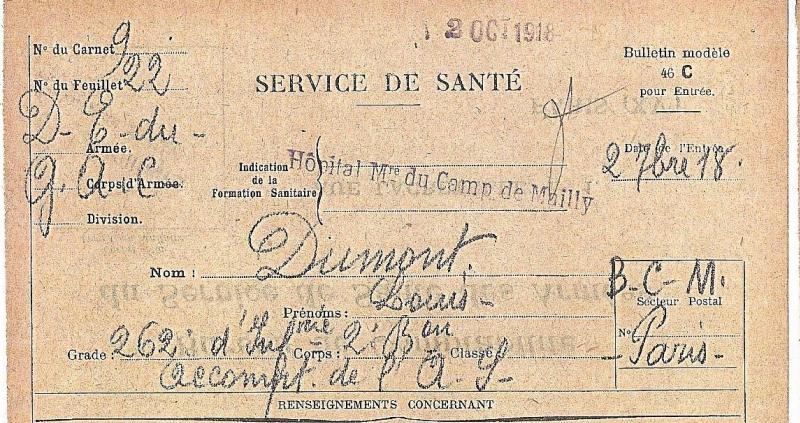 2 OCT 1918
N° du Carnet 9
Bulletin modèle
46 C
pour Entrée.
N° du Feuillet 922
SERVICE DE SANTÉ
D-E-du-
Armée.
G. A. C
Corps d'Armée.
Division.
Indication
de la
Formation Sanitaire
Hôpital Mre du Camp de Mailly
Date de l'Entrée
2 7bre 18.
Nom : Dumont.
Prénoms : Louis-
B-C-M.
Secteur Postal
N°
-Paris-
Grade 262e d'Infrie Corps : 2e Bon Classe
accompt. de l'A-S-
RENSEIGNEMENTS CONCERNANT